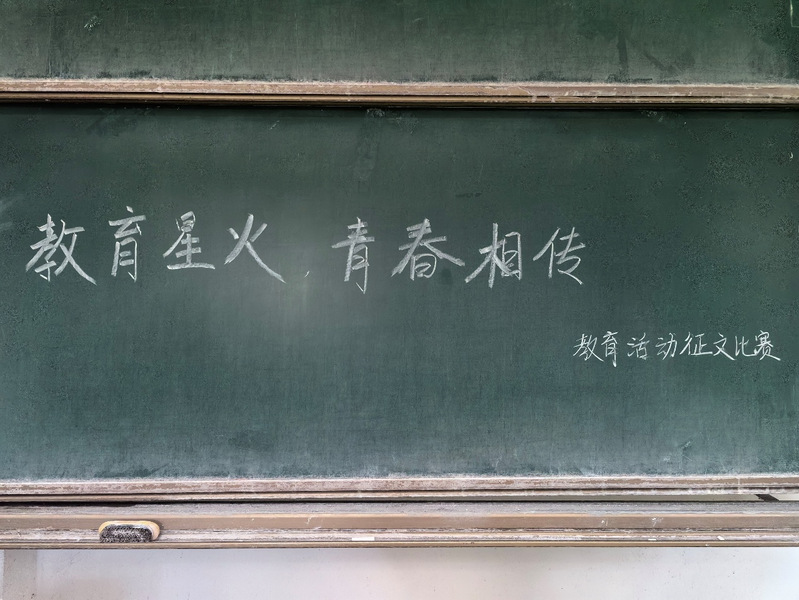 教育星火，青春相传
教育活动征文比赛